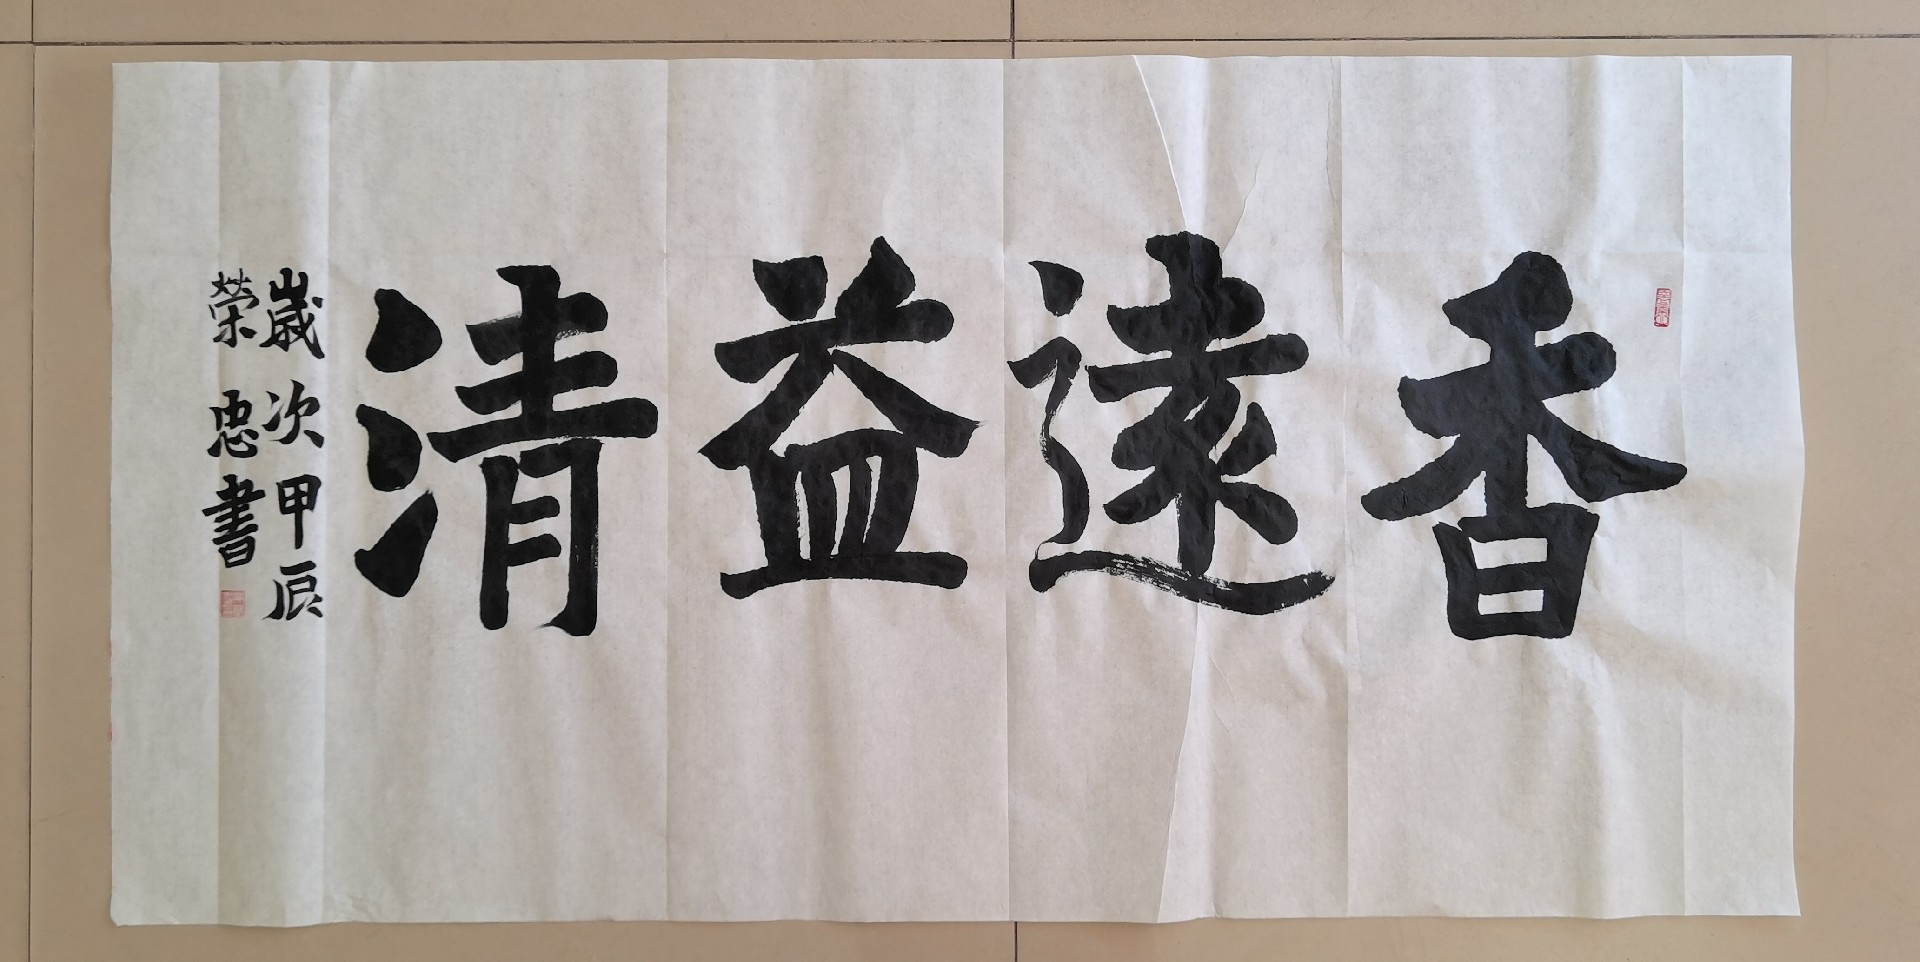 香遠益清
歲次甲辰
榮忠書